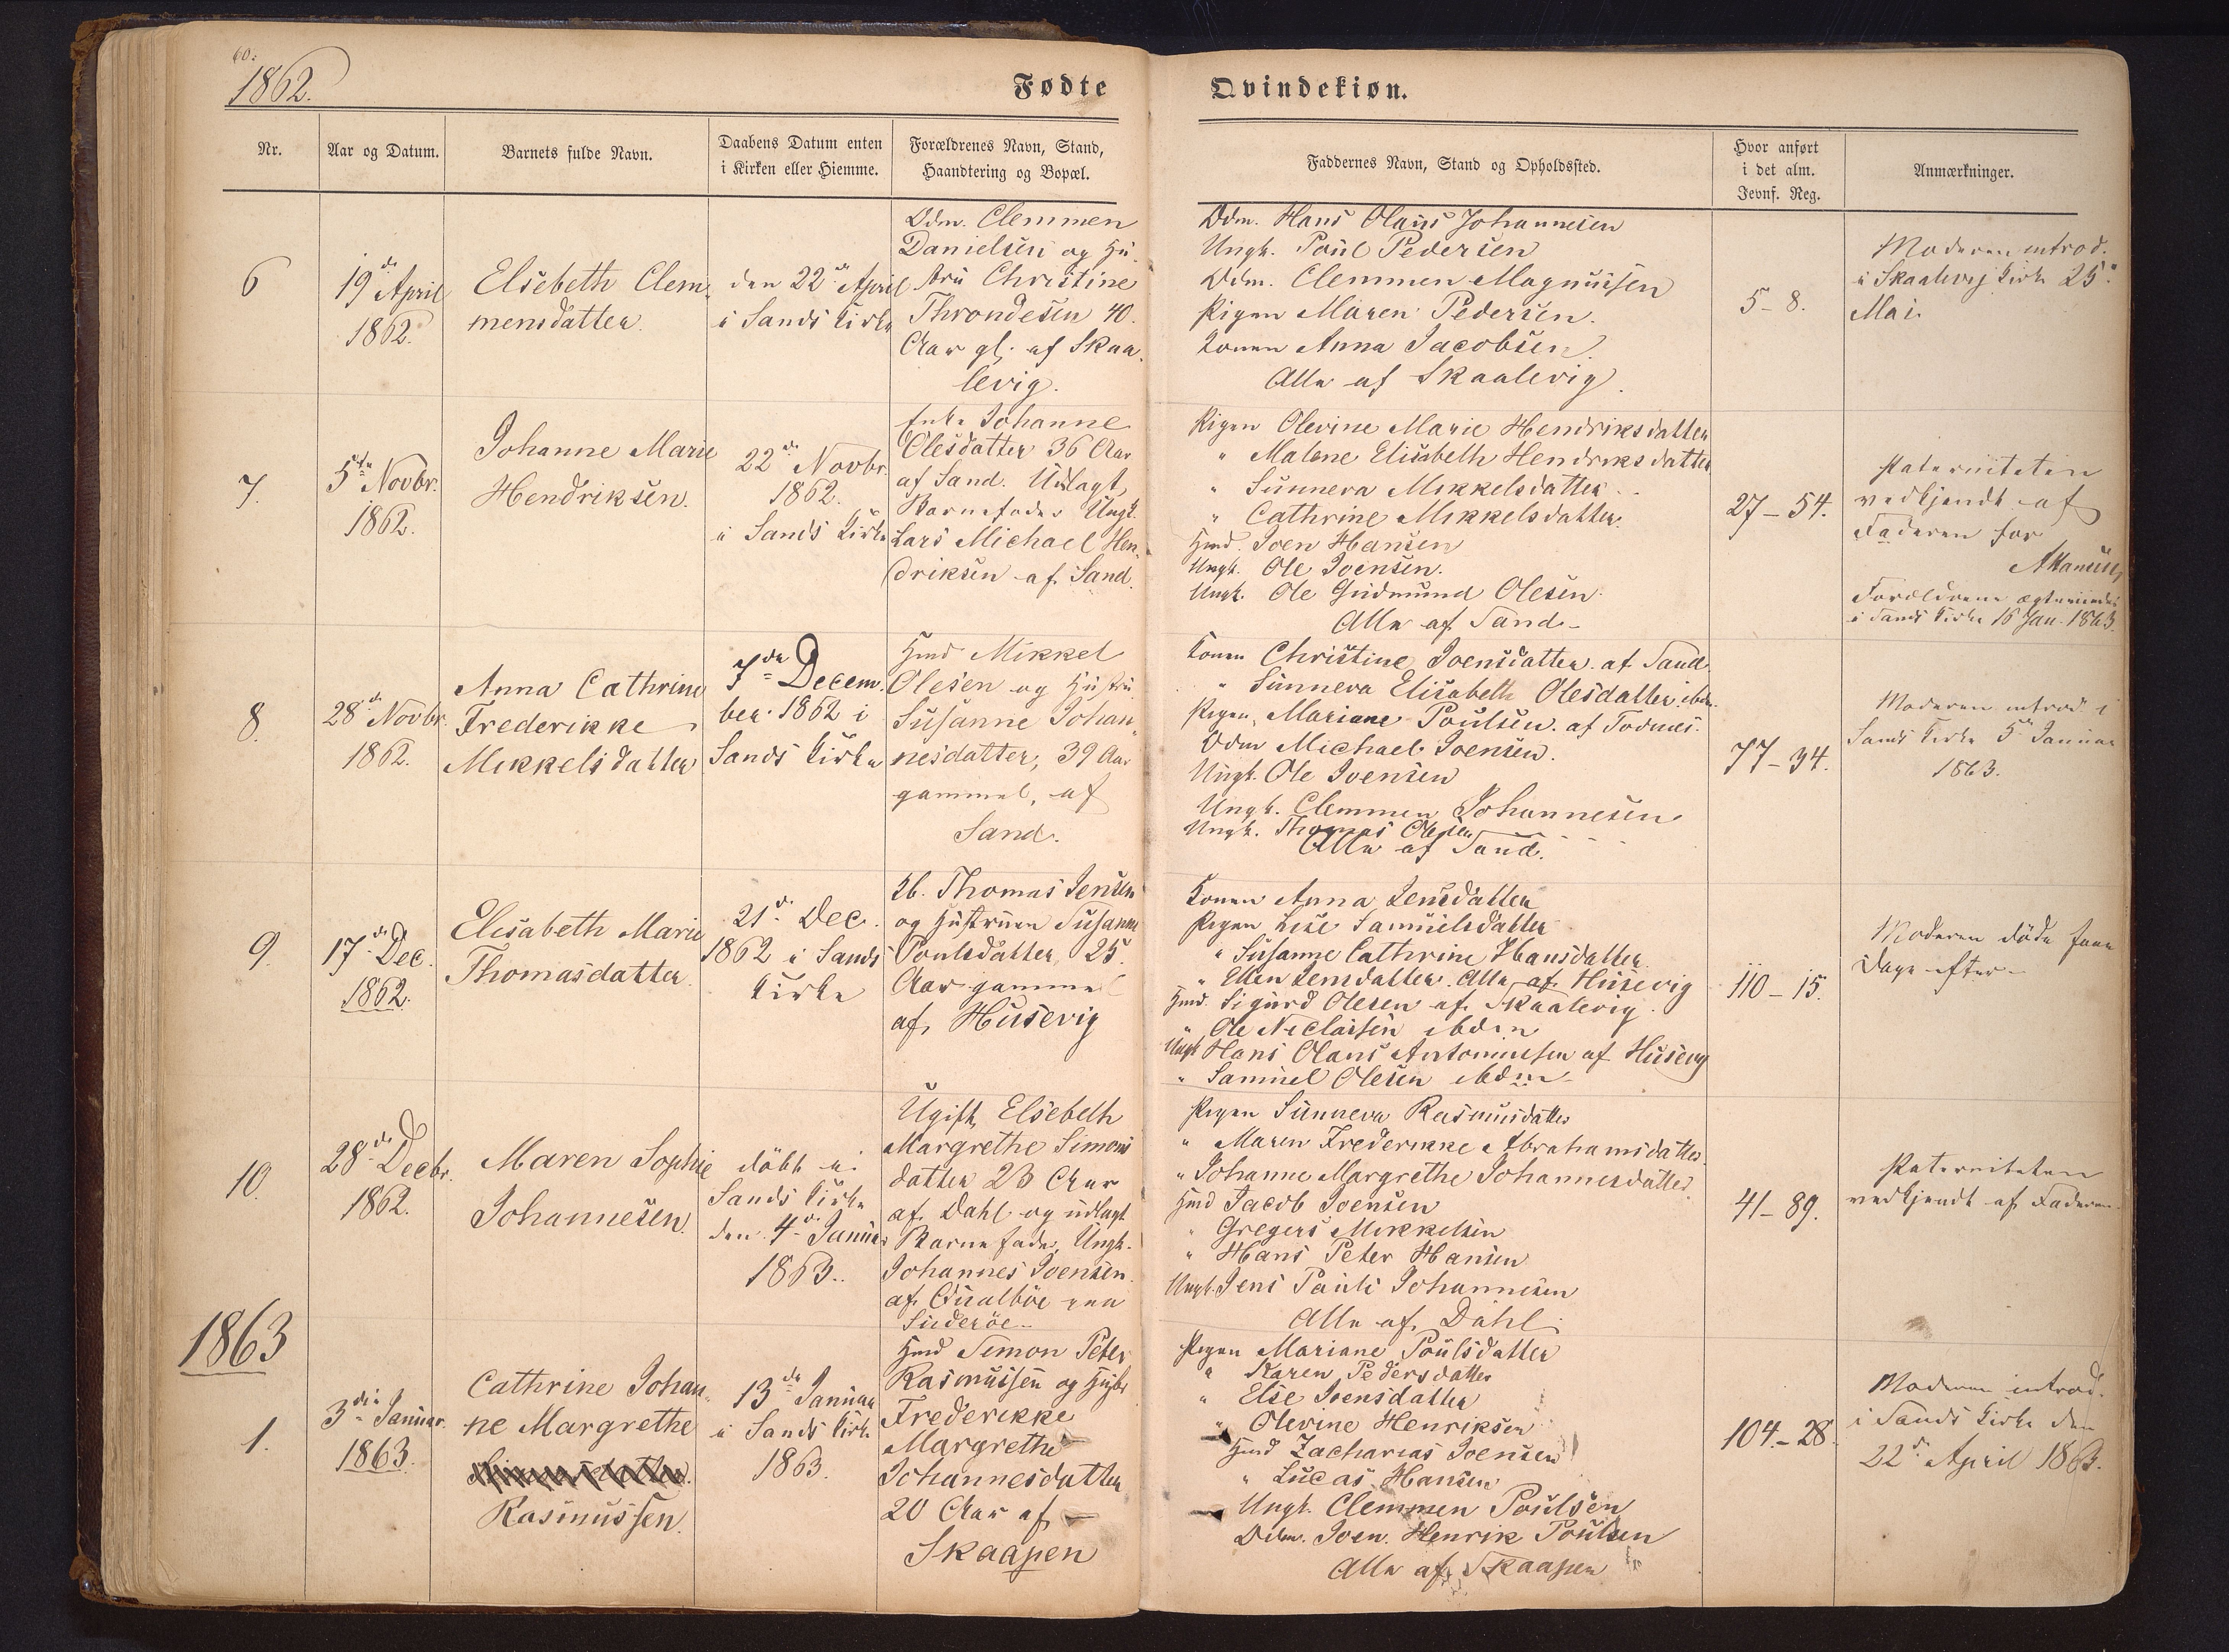 60.
1862.
Fødte
Qvindekiøn.
Nr.
Aar og Datum.
Barnets fulde Navn.
Daabens Datum enten
i Kirken eller Hiemme.
Forældrenes Navn, Stand,
Haandtering og Bopæl.
Faddernes Navn, Stand og Opholdssted.
Hvor anført
i det alm.
Jevnf. Reg.
Anmærkninger.
6
19de April
1862.
Elsebeth Clem-
mensdatter.
den 22de April
i Sands Kirke
Odm. Clemmen
Danielsen og Hu-
stru Christine
Throndesen 40.
Aar gl. af Skaa-
levig.
Odm. Hans Olaus Johannesen
Ungk. Poul Pedersen
Odm. Clemmen Magnussen
Pigen Maren Pedersen.
Konen Anna Jacobsen.
Alle af Skaalevig.
5-8.
Moderen introd.
i Skaalevig Kirke 25.
Mai.
7.
5te Novbr.
1862.
Johanne Marie
Hendriksen.
22de Novbr.
1862.
i Sands Kirke
Enke Johanne
Olesdatter 36 Aar
af Sand. Udlagt
Barnefader Ungk.
Lars Michael Hen-
driksen af Sand.
Pigen Olevine Marie Hendriksdatter
" Malene Elisabeth Hendriksdatter
" Sunneva Mikkelsdatter
" Cathrine Mikkelsdatter.
Hmd. Joen Hansen
Ungk. Ole Joensen.
Ungk. Ole Gudmund Olesen.
Alle af Sand.
27-54.
Paterniteten
vedkjendt af
Faderen for
Forældrene ægteviede
i Sands Kirke 16 Jan. 1863.
8.
28de Novbr.
1862.
Anna Cathrine
Frederikke
Mikkelsdatter
7de Decem-
ber 1862 i
Sands Kirke
Hmd Mikkel
Olesen og Hustru
Susanne Johan-
nesdatter, 39 Aar
gammel, af
Sand.
Konen Christine Joensdatter af Sand.
" Sunneva Elisabeth Olesdatter ibdm.
Pigen Mariane Poulsen af Todnes.
Odm Michael Joensen.
Ungk. Ole Joensen
Ungk. Clemmen Johannesen
Ungk. Thomas Olesen
Alle af Sand.
77-34.
Moderen introd. i
Sands Kirke 5te Januar
1863.
9.
17de Dec.
1862.
Elisabeth Marie
Thomasdatter.
21de Dec.
1862 i Sands
Kirke
Kb. Thomas Jensen
og Hustruen Susanne
Poulsdatter 25.
Aar gammel
af Husevig
Konen Anna Jensdatter
Pigen Lise Samuelsdatter
" Susanne Cathrine Hansdatter
" Ellen Jensdatter. Alle af Husevig
Hmd. Sigurd Olesen af Skaalevig.
" Ole Niclassen ibdm
Ungk Hans Olaus Antoniussen af Husevig
" Samuel Olesen ibdm
110-15.
Moderen døde faae
Dage efter.
10.
28de Decbr.
1862.
Maren Sophie
Johannesen.
døbt i
Sands Kirke
den 4de Januar
1863.
Ugift Elsebeth
Margrethe Simons
datter 23 Aar
af Dahl og udlagt
Barnefader, Ungk.
Johannes Joensen.
af Qualbøe paa
Suderøe.
Pigen Sunneva Rasmusdatter
" Maren Frederikke Abrahamsdatter
" Johanne Margrethe Johannesdatter.
Hmd Jacob Joensen
" Gregers Mikkelsen
" Hans Peter Hansen
Ungk. Jens Pauli Johannesen
Alle af Dahl.
41-89.
Paterniteten
vedkjendt af Faderen.
1863
1.
3die Januar.
1863.
Cathrine Johan-
ne Margrethe
Rasmussen.
13de Januar
i Sands Kirke
1863.
Hmd Simon Peter
Rasmussen og Hustr
Frederikke
Margrethe
Johannesdatter
20 Aar af
Skaapen
Pigen Mariane Poulsdatter
" Karen Pedersdatter
" Else Joensdatter
" Olevine Henriksen
Hmd Zacharias Joensen
" Lucas Hansen
Ungk. Clemmen Poulsen
Odm. Joen Henrik Poulsen
Alle af Skaapen
104-28.
Moderen introd.
i Sands Kirke den
22de April 1863.